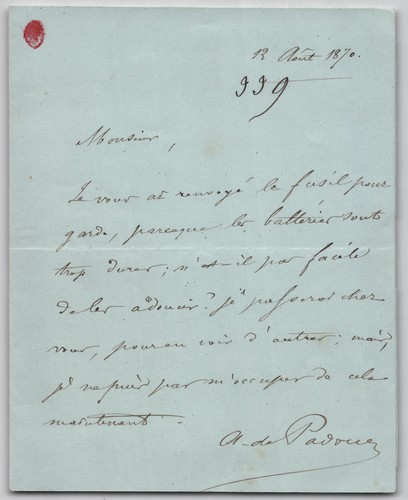 12 Août 1870.
339
Monsieur,
Je vous ai renvoyé le fusil pour
garde, parceque les battéries sont
trop dures; n'est-il pas facile
de les adoucir? je passerai chez
vous, pour en voir d'autres; mais,
je ne puis pas m'occuper de cela
maintenant.
A. de Padoue